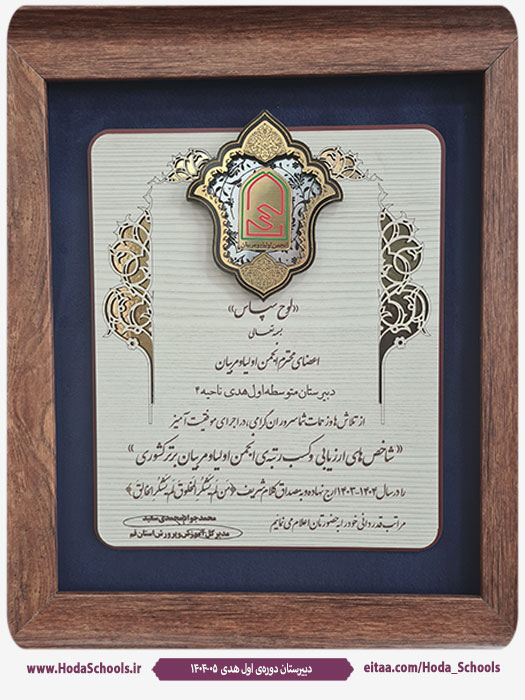 انجمن اولیاء و مربیان
«لوح سپاس»
بسمه تعالی
اعضای محترم انجمن اولیاء و مربیان
دبیرستان متوسطه اول هدی ناحیه ۴
از تلاش ها و زحمات شما سروران گرامی، در اجرای موفقیت آمیز
«شاخص های ارزیابی و کسب رتبه ی انجمن اولیاء و مربیان برتر کشوری»
را در سال ۱۴۰۴-۱۴۰۳ ارج نهاده و به مصداق کلام شریف «من لم یشکر المخلوق لم یشکر الخالق»
مراتب قدردانی خود را به حضورتان اعلام می نمایم
محمدجواد محمدی سعید
مدیر کل آموزش و پرورش استان قم
www.HodaSchools.ir
دبیرستان دوره‌ی اول هدی ۰۵-۱۴۰۴
eitaa.com/Hoda_Schools